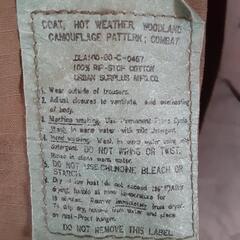 COAT, HOT WEATHER, WOODLAND
CAMOUFLAGE PATTERN; COMBAT
100% RIP-STOP COTTON
URBAN SURPLUS MFG.CO
1. Wear outside of trousers.
2. Adjust closures to ventilate, avoid overheating
of body.
3. Machine washing. Use Permanent Press Cycle
Wash in warm water with mild detergent.
4. Hand washing. Wash in warm water using mild
detergent. DO NOT WRING OR TWIST.
Rinse in clean warm water.
5. DO NOT USE CHLORINE BLEACH OR
STARCH.
6. Dry at low heat (do not exceed
Remove immediately from dryer.
To drip dry, remove from water and place
on rust-proof hanger.
DO NOT REMOVE THIS LABEL